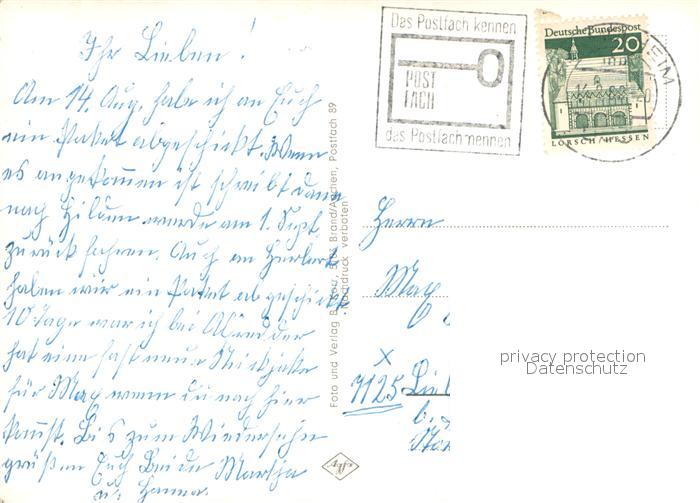 Ihr Lieben!
Am 14. Aug. habe ich an Euch
ein Paket abgeschickt. Wenn
es angekommen ist schreibt dann
nach Hilden werde am 1. Sept.
zurück fahren. Auch an Herbert
haben wir ein Paket abgeschickt
10 Tage war ich bei Alfred der
hat eine fast neue
für Max wenn du nach hier
kommst. Bis zum Wiedersehn
grüßen Euch Beide Martha
u. Hanna.
Das Postfach kennen
POST
FACH
das Postfach nennen
Deutsche Bundespost
20
LORSCH/HESSEN
HEIM
Foto und Verlag Brand/Aachen, Postfach 89
Nachdruck verboten
Herrn
Max
x
7125 Lie
b.
Agfa
privacy protection
Datenschutz